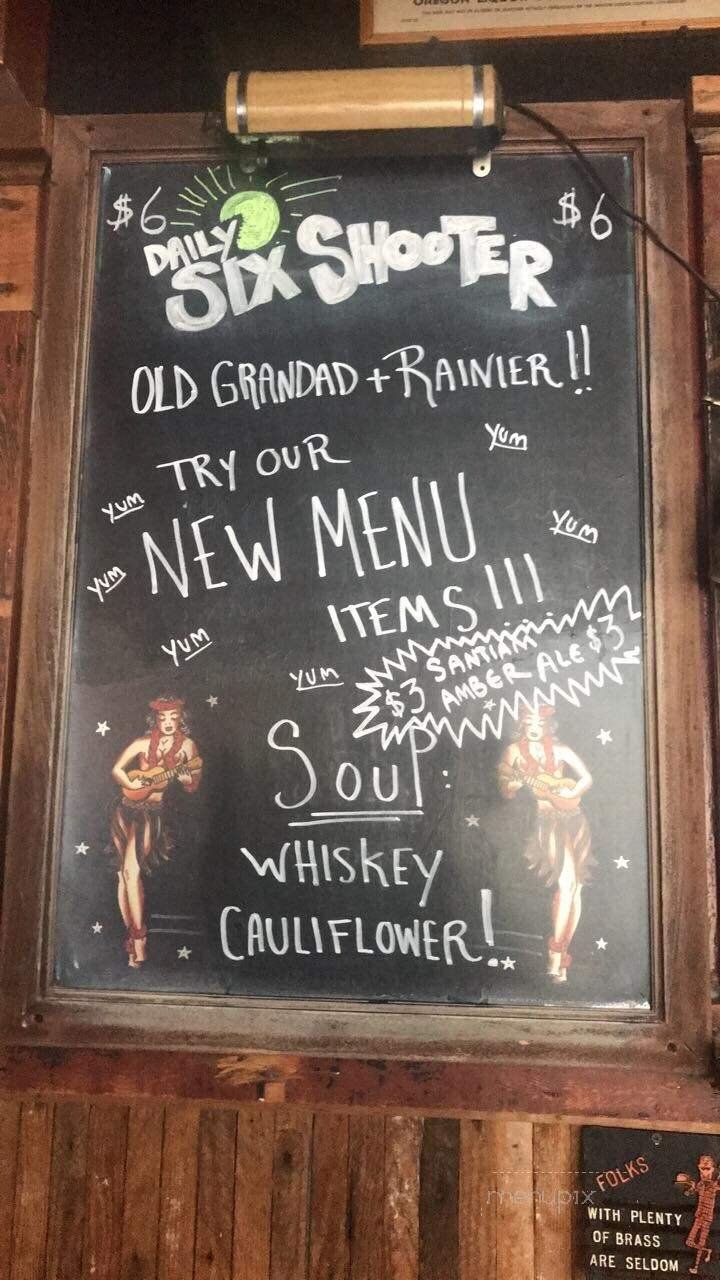 $6
$6
DAILY
SIX SHOOTER
OLD GRANDAD + RAINIER!!
YUM
TRY OUR
YUM
NEW MENU
YUM
YUM
ITEMS!!!
YUM
YUM
$3 AMBER ALE $3
SOUP:
WHISKEY
CAULIFLOWER!
menupix
FOLKS
WITH PLENTY
OF BRASS
ARE SELDOM